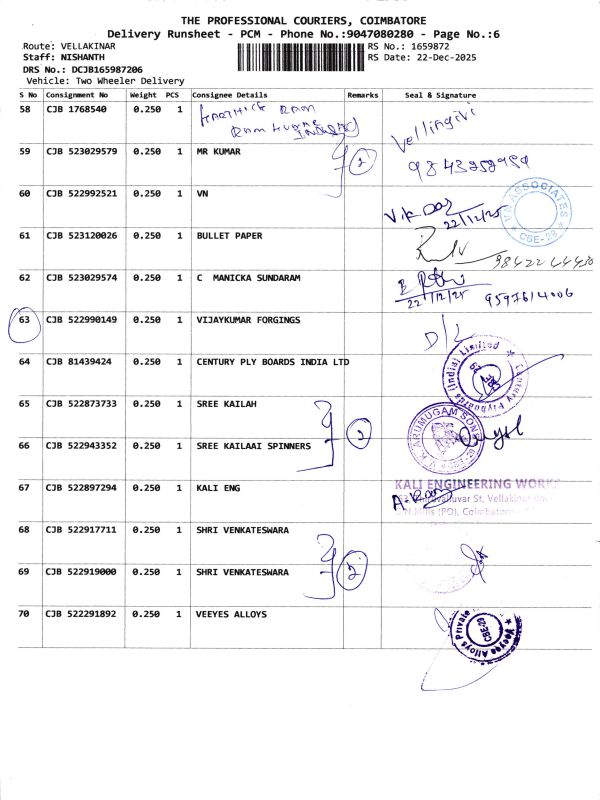 THE PROFESSIONAL COURIERS, COIMBATORE
Delivery Runsheet - PCM - Phone No.:9047080280 - Page No.:6
Route: VELLAKINAR
RS No.: 1659872
Staff: NISHANTH
RS Date: 22-Dec-2025
DRS No.: DCJB165987206
Vehicle: Two Wheeler Delivery
S No Consignment No Weight PCS Consignee Details Remarks Seal & Signature
58 CJB 1768540 0.250 1 KARTHICK RAM
Vellingivi
59 CJB 523029579 0.250 1 MR KUMAR 2
60 CJB 522992521 0.250 1 VN
22/12/25
VN ASSOCIATES * CBE-29 *
61 CJB 523120026 0.250 1 BULLET PAPER
62 CJB 523029574 0.250 1 C MANICKA SUNDARAM
22/12/25
63 CJB 522990149 0.250 1 VIJAYKUMAR FORGINGS D/L
64 CJB 81439424 0.250 1 CENTURY PLY BOARDS INDIA LTD
Century Plyboards (India) Limited
65 CJB 522873733 0.250 1 SREE KAILAH
66 CJB 522943352 0.250 1 SREE KAILAAI SPINNERS 2
V.K. ARUMUGAM SONS
67 CJB 522897294 0.250 1 KALI ENG
KALI ENGINEERING WORKS
St, Vellakinar
Mills (PO), Coimbatore
68 CJB 522917711 0.250 1 SHRI VENKATESWARA
69 CJB 522919000 0.250 1 SHRI VENKATESWARA 2
70 CJB 522291892 0.250 1 VEEYES ALLOYS
Veeyes Alloys Private
CBE-29